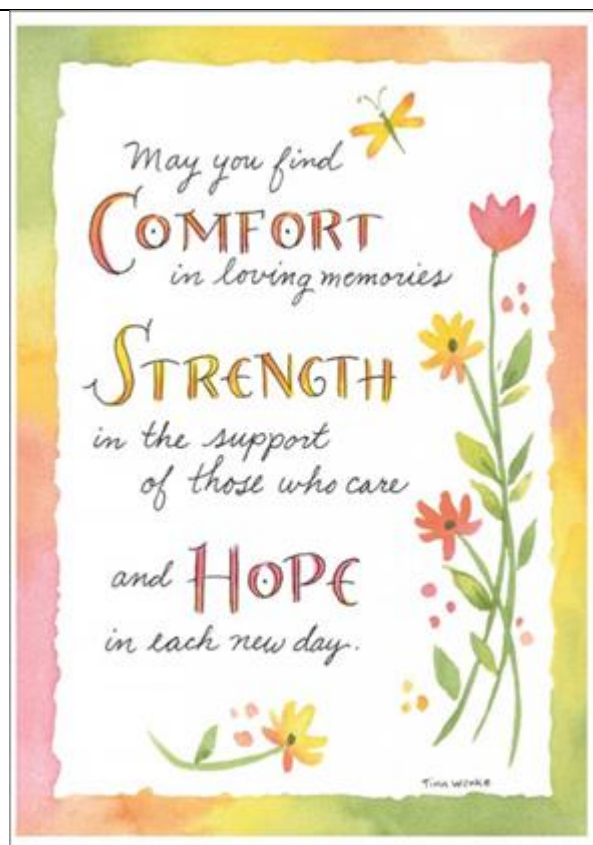 May you find
COMFORT
in loving memories
STRENGTH
in the support
of those who care
and HOPE
in each new day.